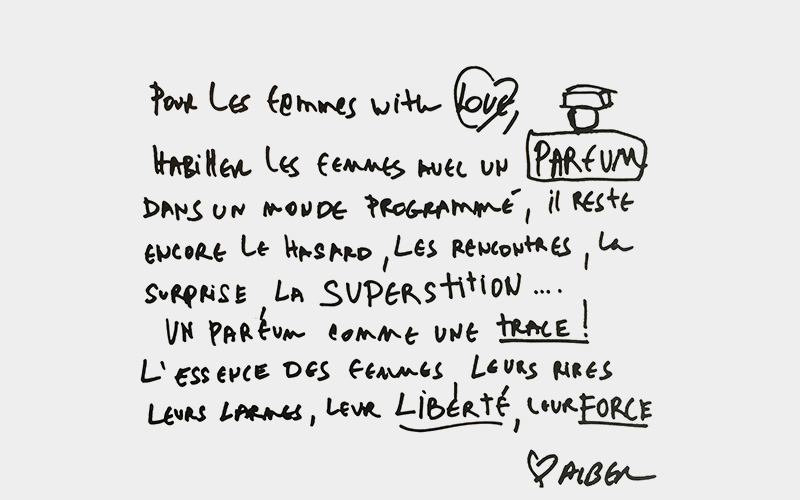 Pour les femmes with love,
Habiller les femmes avec un PARFUM
DANS UN MONDE PROGRAMMÉ, il RESTE
ENCORE LE HASARD, LES RENCONTRES, la
SURPRISE, LA SUPERSTITION ....
UN PARFUM COMME UNE TRACE !
L'ESSENCE DES FEMMES, LEURS RIRES
LEURS LARMES, LEUR LIBERTÉ, LEUR FORCE
♡ ALBER